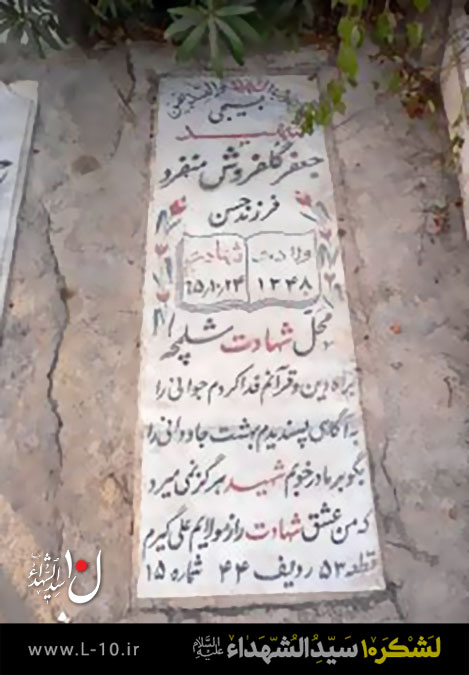 بسیجی
شهید
جعفر گلفروش منفرد
فرزند حسن
ولادت شهادت
۱۳۴۸ ۶۵،۱۰،۲۴
محل شهادت شلمچه
براه دین و قرآنم فدا کردم جوانی را
به آگاهی پسندیدم بهشت جاودانی را
بگو بر مادر خوبم شهید هرگز نمی میرد
که من عشق شهادت را ز مولایم علی گیرم
قطعه ۵۳ ردیف ۴۴ شماره ۱۵
ل۱۰ سیدالشهداء
www.L-10.ir
لشکر۱۰ سَیِّدُالشُّهَداء عَلَیهِ السَّلام